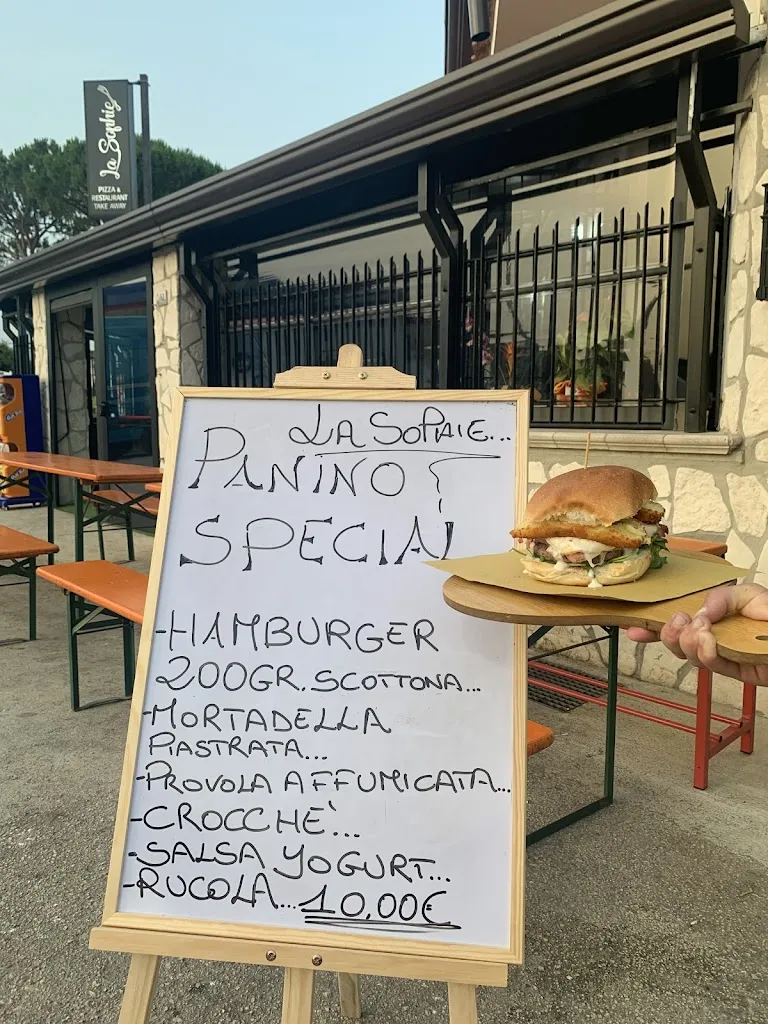 La Sophie
PIZZA &
RESTAURANT
TAKE AWAY
LA SOPHIE...
PANINO
SPECIAL
-HAMBURGER
200GR. SCOTTONA...
-MORTADELLA
PIASTRATA...
-PROVOLA AFFUMICATA...
-CROCCHE'...
-SALSA YOGURT...
-RUCOLA...10,00€